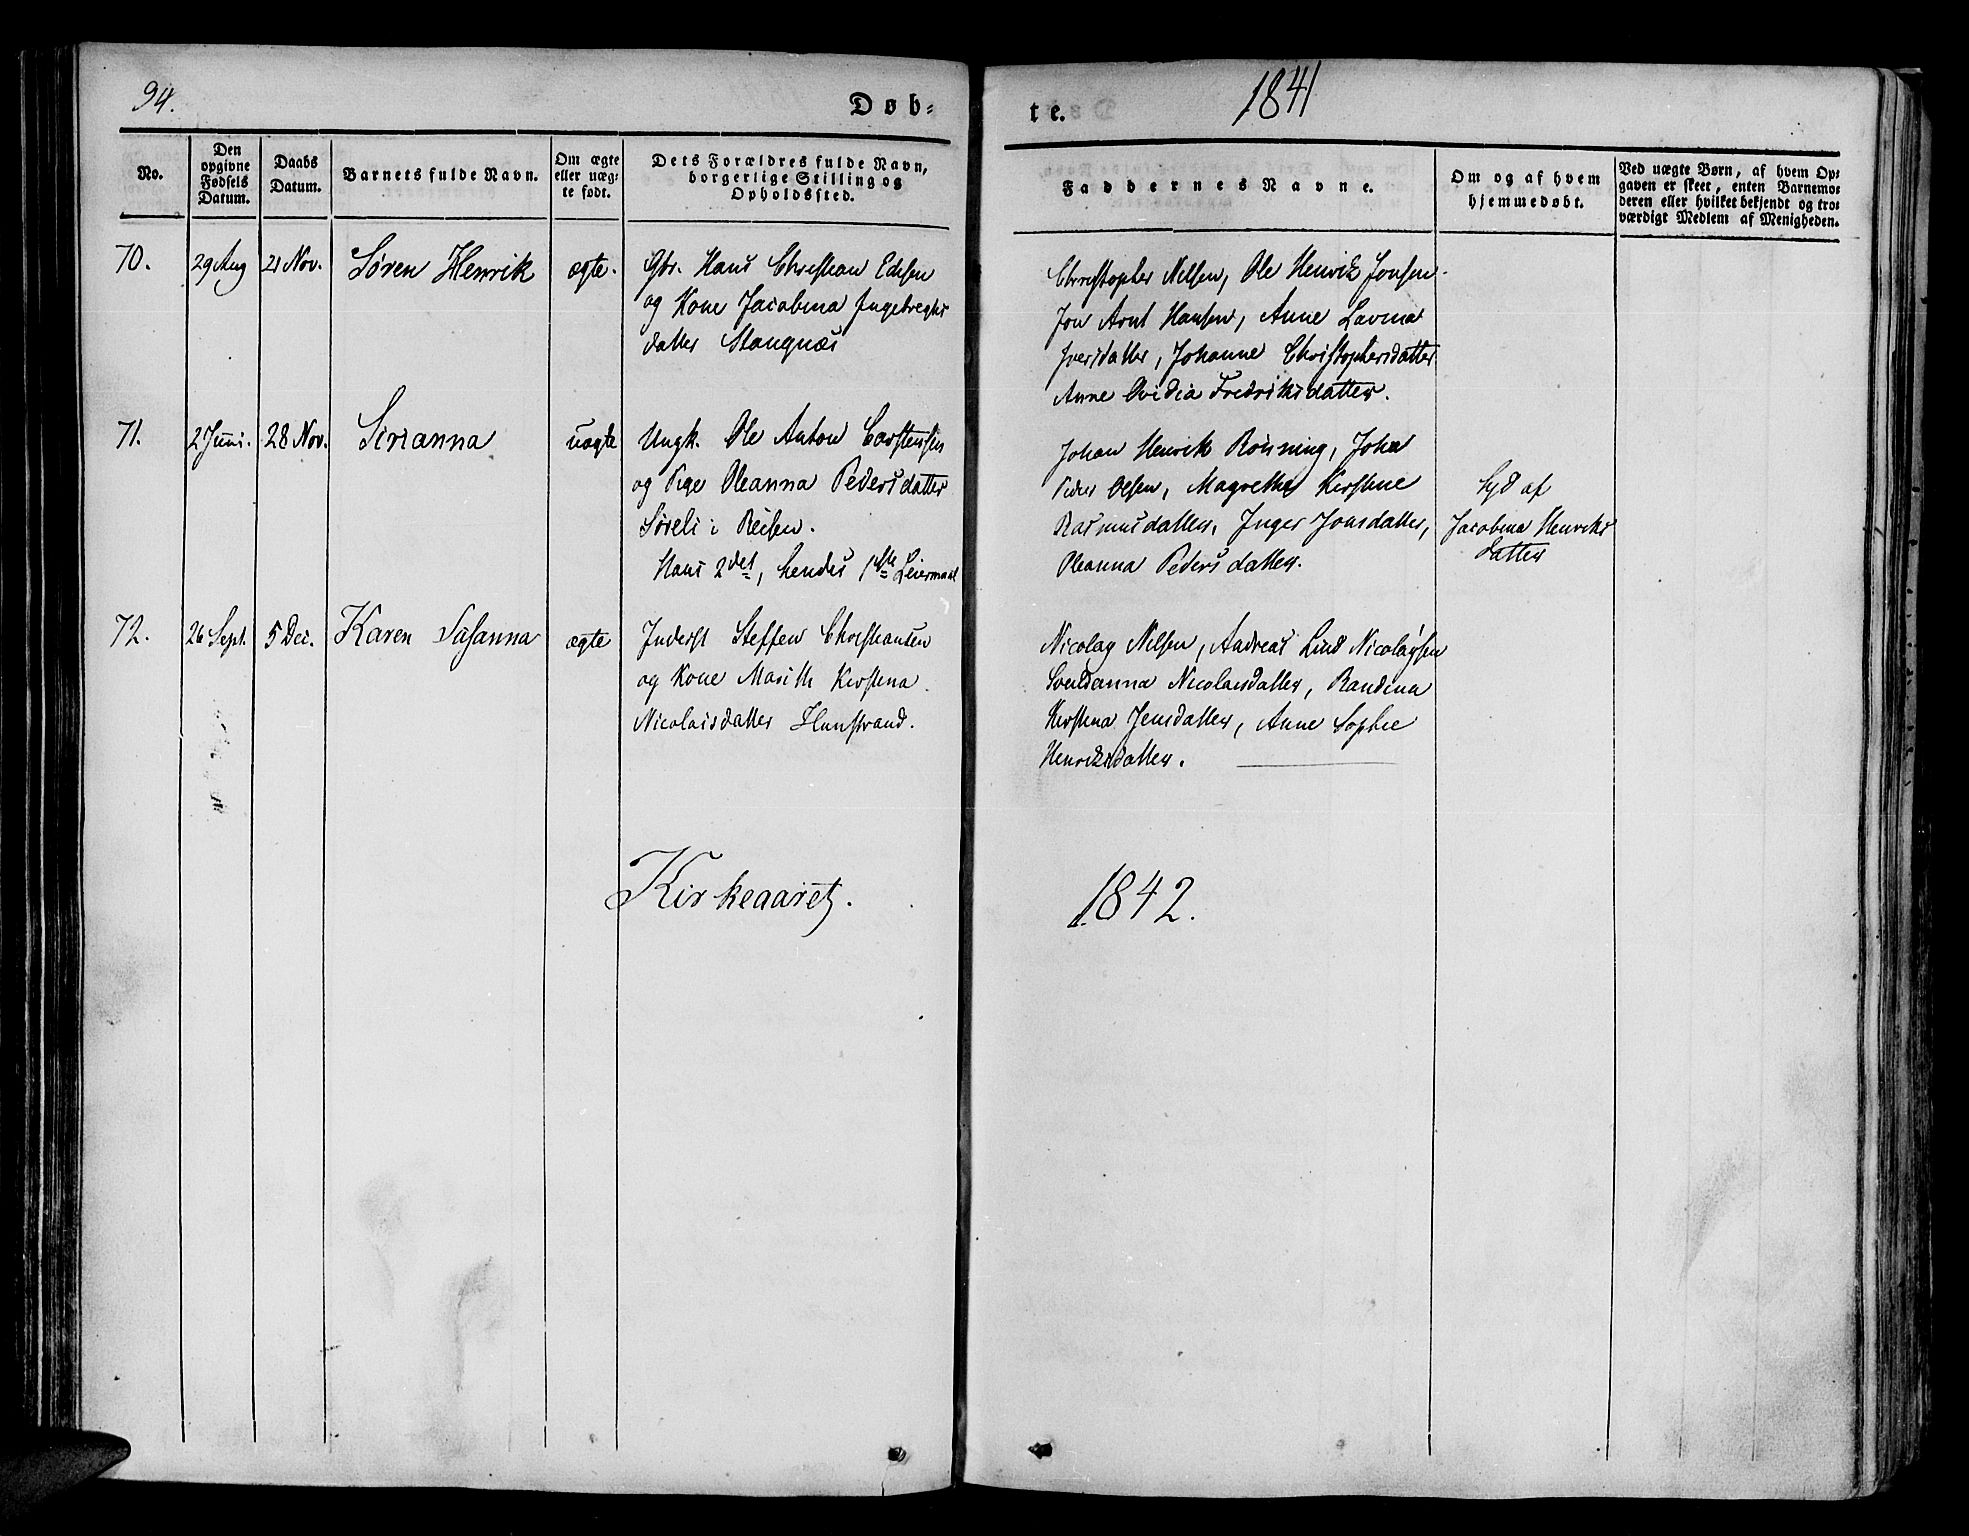 94.
Døb-
te.
1841
No.
Den opgivne Fødsels Datum.
Daabs Datum.
Barnets fulde Navn.
Om ægte eller uægte født.
Dets Forældres fulde Navn, borgerlige Stilling og Opholdssted.
Faddernes Navne.
Om og af hvem hjemmedøbt.
Ved uægte Børn, af hvem Opgaven er skeet, enten Barnemoderen eller hvilket bekjendt og troværdigt Medlem af Menigheden.
70.
29 Aug
21 Nov.
Søren Henrik
ægte.
Gbr. Hans Christian Edisen
og Kone Jacobina Ingebregts
datter Stangnæs
Christopher Nilsen, Ole Henrik Jonsen
Jon Arnt Hansen, Anne Lavina
Iversdatter, Johanne Christophersdatter
Anne Ovidia Fredriksdatter.
71.
2 Juni.
28 Nov.
Sirianna
uægte
Ungk. Ole Anton Carstensen
og Pige Oleanna Pedersdatter
Søreli i Reisen.
Hans 2det, hendes 1ste Leiermaal
Johan Henrik Rønning, Johan
Peder Olsen, Magrethe Kirstine
Rasmusdatter, Inger Jonsdatter,
Oleanna Pedersdatter.
Hjd af
Jacobina Henriks
datter
72.
26 Sept.
5 Dec.
Karen Susanna
ægte
Inderst Steffen Christiansen
og Kone Marith Kirstina
Nicolaisdatter Finstrand.
Nicolay Nilsen, Andreas Lind Nicolaysen
Nicolaisdatter, Randina
Kirstina Jensdatter, Anne Sophie
Henriksdatter.
Kirkeaaret.
1842.